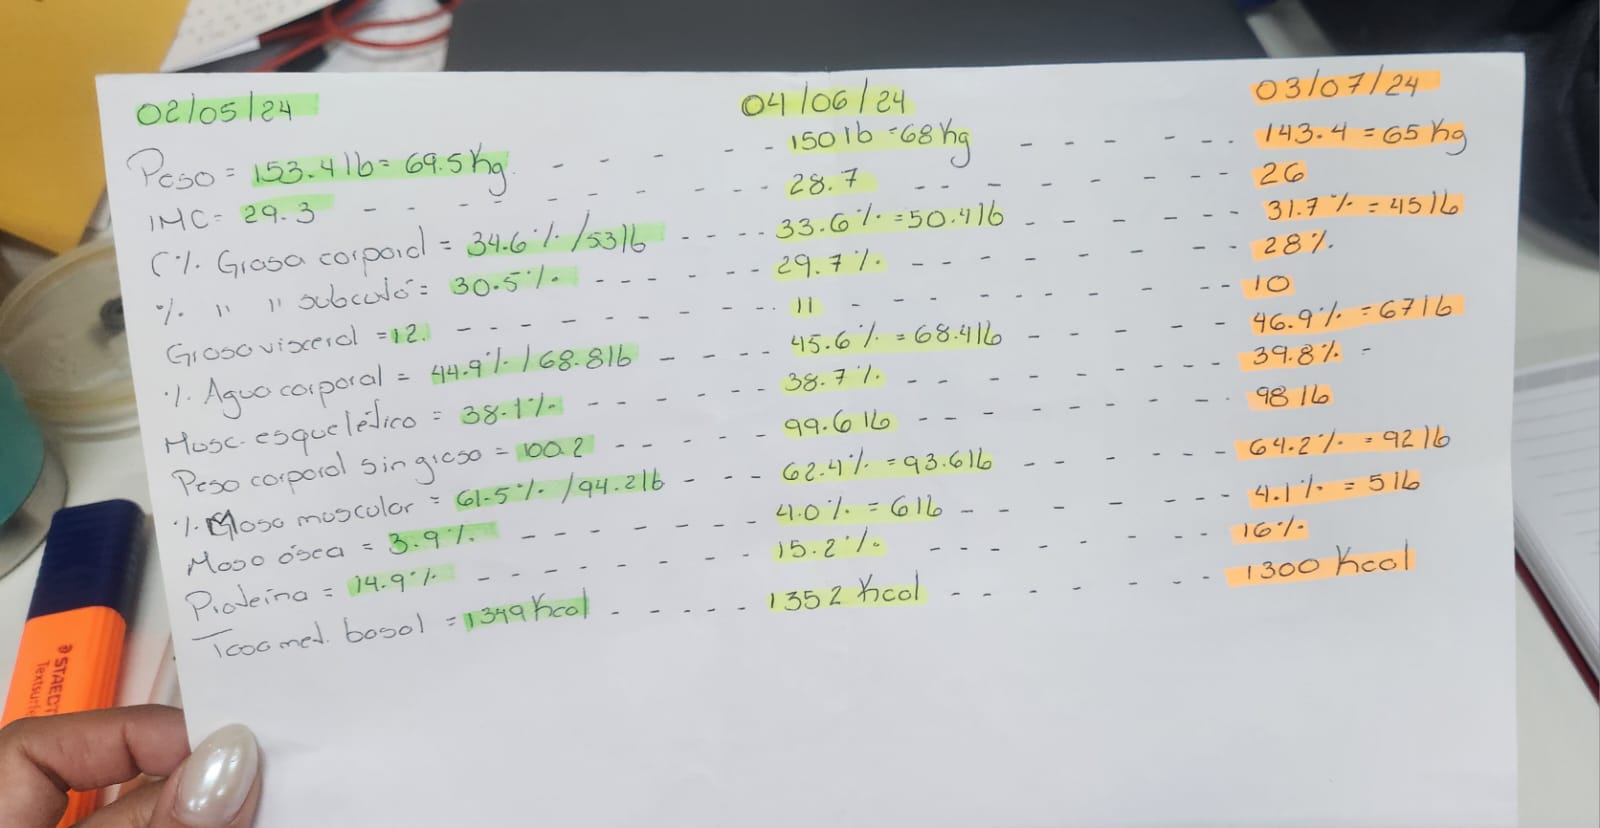 02/05/24 04/06/24 03/07/24
Peso = 153.4 lb = 69.5 Kg - - - - - 150 lb = 68 Kg - - - - - 143.4 = 65 Kg
IMC = 29.3 - - - - - - - - 28.7 - - - - - - - - 26
(% Grasa corporal = 34.6 % / 53 lb - - - - 33.6 % = 50.4 lb - - - - - - - 31.7 % = 45 lb
% " " subcutó = 30.5 % - - - - - - 29.7 % - - - - - - - - 28 %
Grasa visceral = 12. - - - - - - - - 11 - - - - - - - - 10
% Agua corporal = 44.9 % / 68.8 lb - - - - 45.6 % = 68.4 lb - - - - - - 46.9 % = 67 lb
Musc. esquelético = 38.1 % - - - - - - 38.7 % - - - - - - - - 39.8 % -
Peso corporal sin grasa = 100.2 - - - - - 99.6 lb - - - - - - - - 98 lb
% Masa muscular = 61.5 % / 94.2 lb - - - 62.4 % = 93.6 lb - - - - - - - 64.2 % = 92 lb
Masa ósea = 3.9 % - - - - - - - 4.0 % = 6 lb - - - - - - - - 4.1 % = 5 lb
Proteína = 14.9 % - - - - - - - - 15.2 % - - - - - - - - 16 %
Tasa met. basal = 1349 Kcal - - - - 1352 Kcal - - - - - - - - 1300 Kcal
STAEDT
Textsurf